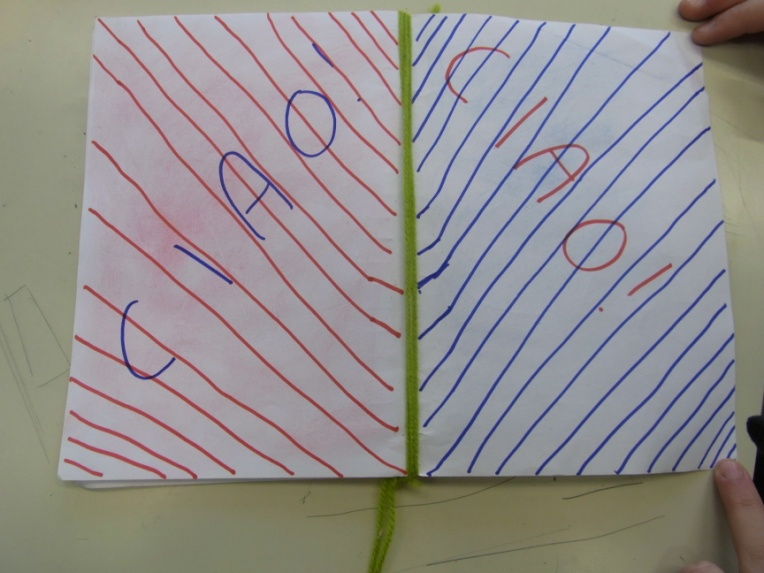 CIAO!
CIAO!